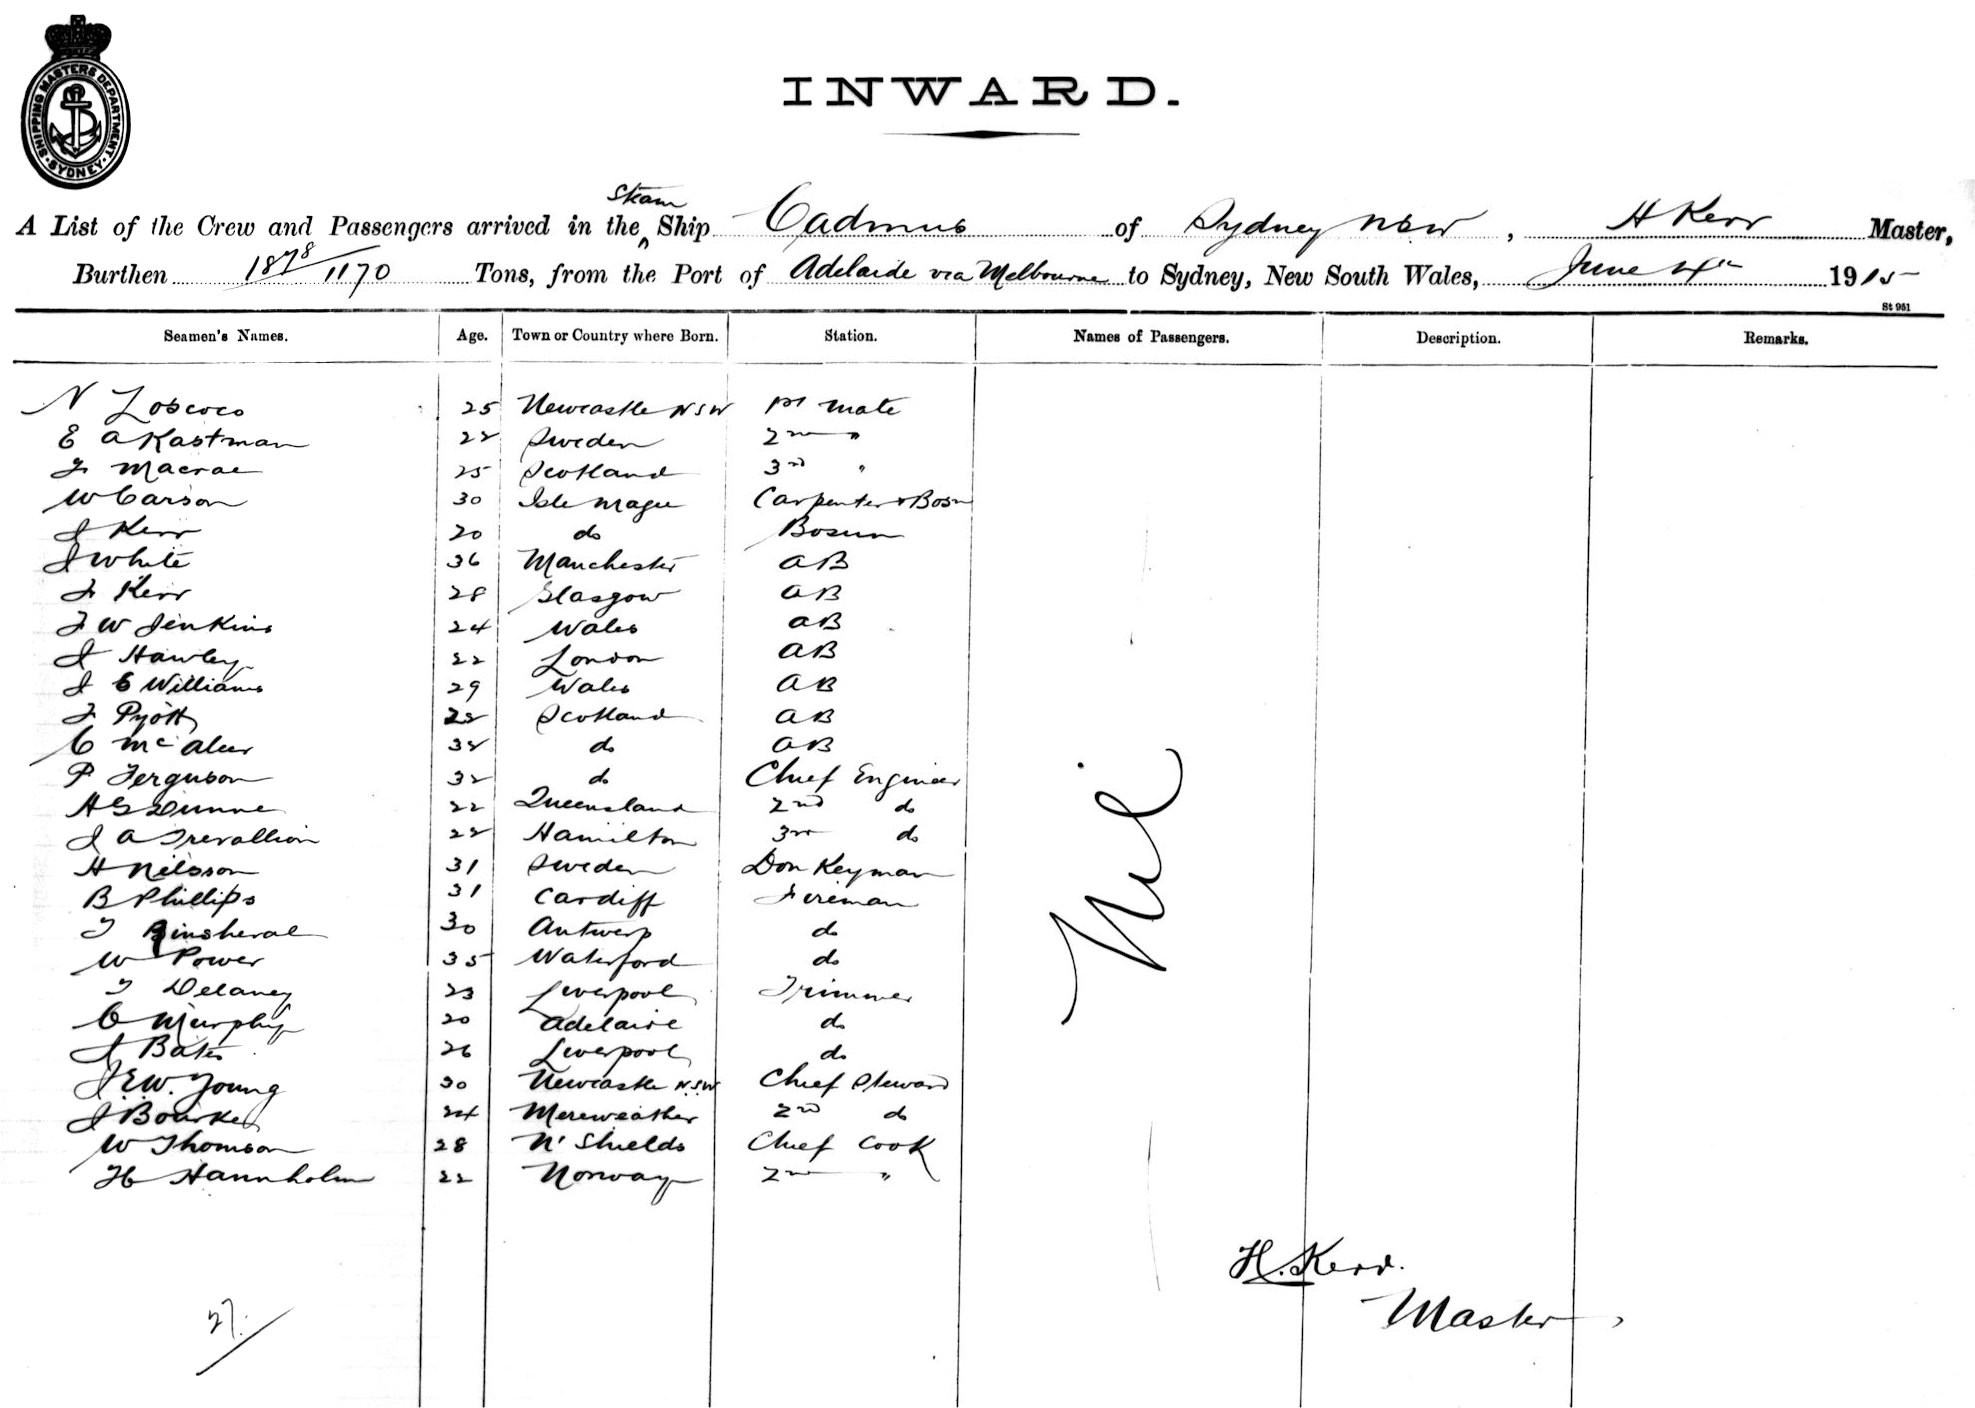 SHIPPING MASTERS DEPARTMENT
SYDNEY
INWARD.
Steam
A List of the Crew and Passengers arrived in the Ship Cadmus of Sydney NSW, H Kerr Master,
Burthen 1878/1170 Tons, from the Port of Adelaide via Melbourne to Sydney, New South Wales, June 4th 1915
St 951
Seamen's Names. Age. Town or Country where Born. Station. Names of Passengers. Description. Remarks.
N Loscoco 25 Newcastle NSW 1st mate
E A Kastman 22 Sweden 2nd "
J Macrae 25 Scotland 3rd "
W Carson 30 Isle Magee Carpenter & Bosn
J Kerr 20 do Bosun
J White 36 Manchester AB
J Kerr 28 Glasgow AB
J W Jenkins 24 Wales AB
J Hawley 22 London AB
J C Williams 29 Wales AB
J Pyott 22 Scotland AB
C McAleer 32 do AB
P Ferguson 32 do Chief Engineer
H G Dunne 22 Queensland 2nd do
J A Trevallion 22 Hamilton 3rd do
H Nilsson 31 Sweden Donkeyman
B Phillips 31 Cardiff Fireman
T 30 Antwerp do
W Power 35 Waterford do
T Delaney 23 Liverpool Trimmer
C Murphy 20 Adelaide do
J Bates 26 Liverpool do
J.E.W. Young 30 Newcastle N.S.W Chief Steward
J Bourke 24 Mereweather 2nd do
W Thomson 28 N' Shields Chief Cook
H Hannholm 22 Norway 2nd "
Nil
H. Kerr.
Master
27.